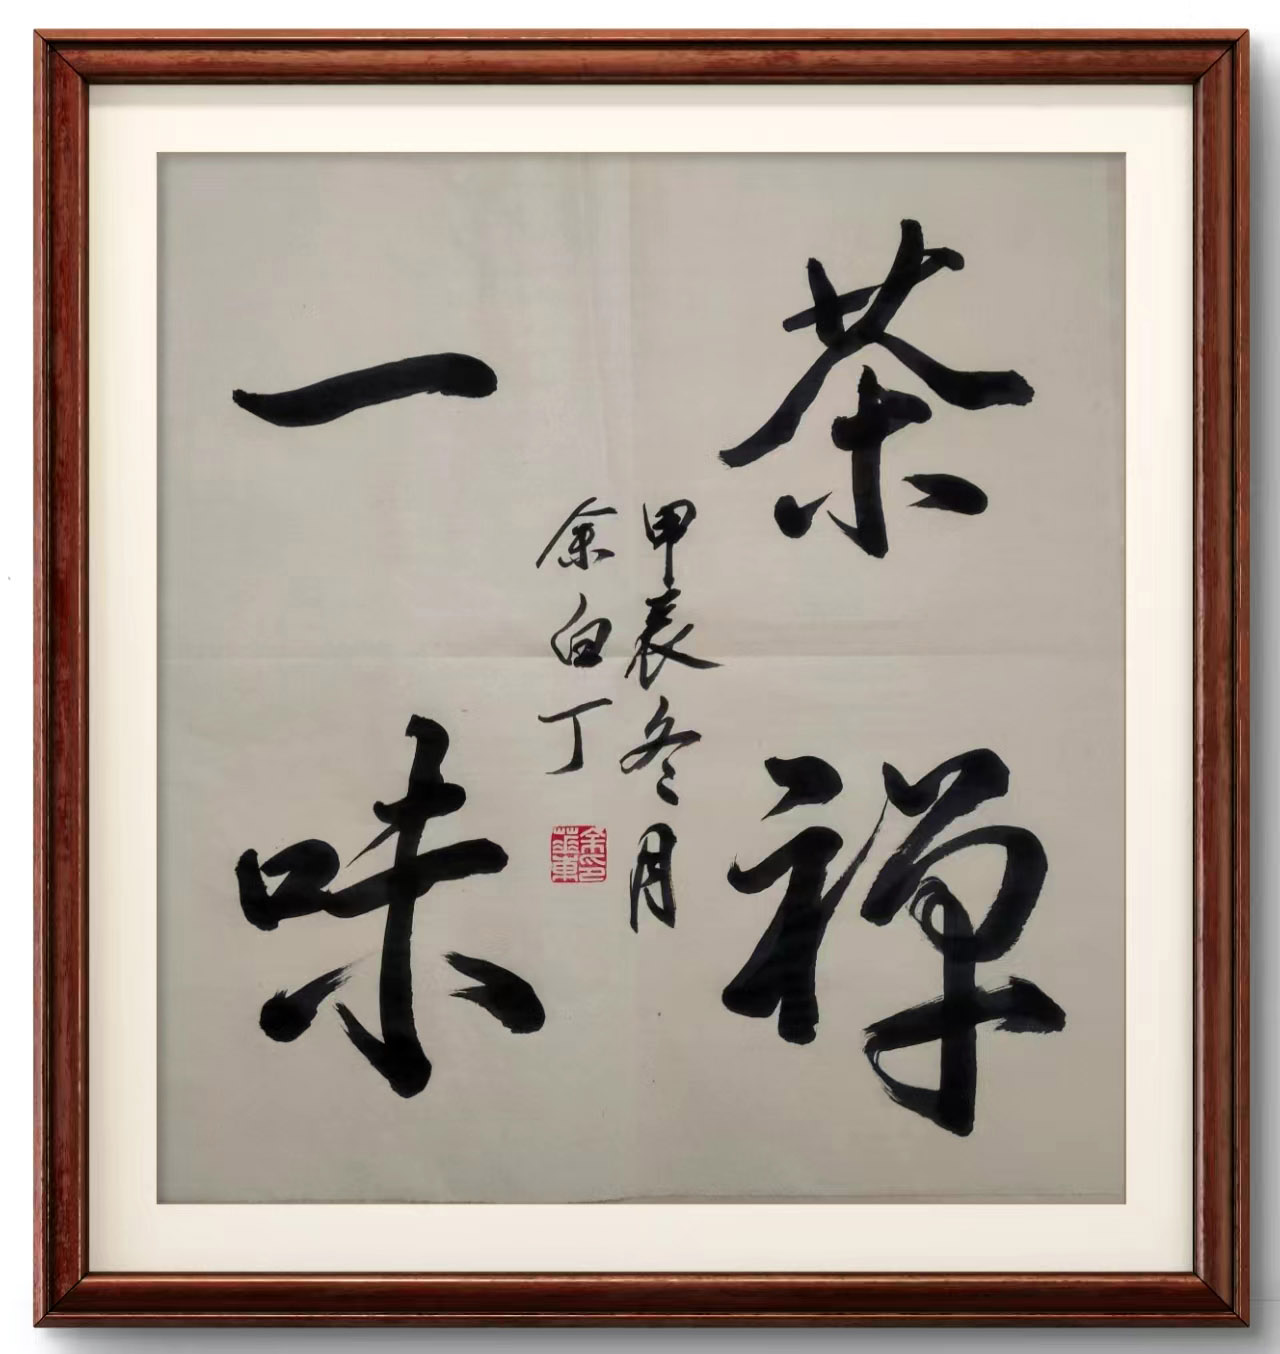 茶禅
一味
甲辰冬月
余白丁